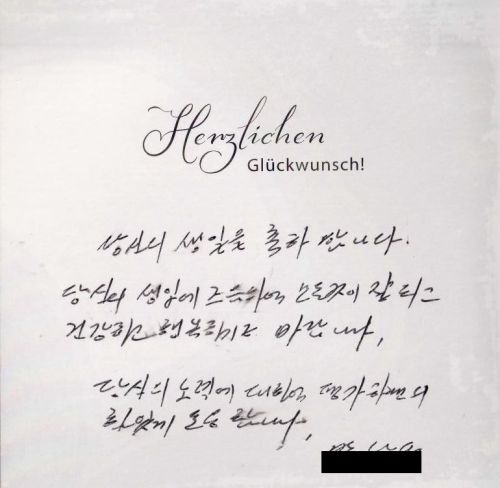 Herzlichen
Glückwunsch!
당신의 생일을 축하 합니다.
당신의 생일에 모든것이 잘 되고
건강하고 행복하기를 바랍니다,
당신의 노력에 대하여 평가하면서